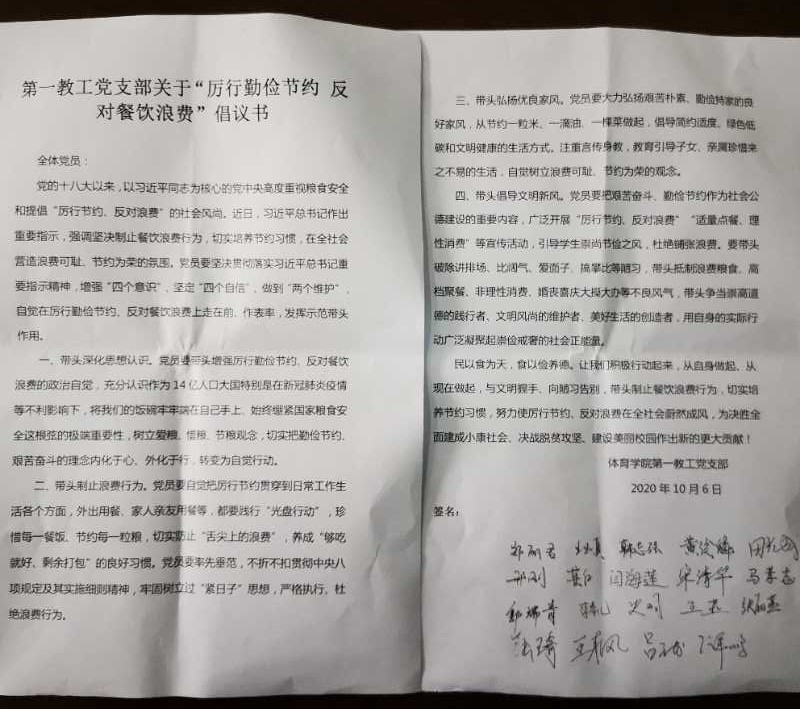 第一教工党支部关于“厉行勤俭节约 反
对餐饮浪费”倡议书
全体党员：
党的十八大以来，以习近平同志为核心的党中央高度重视粮食安全
和提倡“厉行节约、反对浪费”的社会风尚。近日，习近平总书记作出
重要指示，强调坚决制止餐饮浪费行为，切实培养节约习惯，在全社会
营造浪费可耻、节约为荣的氛围。党员要坚决贯彻落实习近平总书记重
要指示精神，增强“四个意识”，坚定“四个自信”，做到“两个维护”，
自觉在厉行勤俭节约、反对餐饮浪费上走在前、作表率，发挥示范带头
作用。
一、带头深化思想认识。党员要带头增强厉行勤俭节约、反对餐饮
浪费的政治自觉，充分认识作为14亿人口大国特别是在新冠肺炎疫情
等不利影响下，将我们的饭碗牢牢端在自己手上、始终绷紧国家粮食安
全这根弦的极端重要性，树立爱粮、惜粮、节粮观念，切实把勤俭节约、
艰苦奋斗的理念内化于心、外化于行，转变为自觉行动。
二、带头制止浪费行为。党员要自觉把厉行节约贯穿到日常工作生
活各个方面，外出用餐、家人亲友用餐等，都要践行“光盘行动”，珍
惜每一餐饭、节约每一粒粮，切实防止“舌尖上的浪费”，养成“够吃
就好、剩余打包”的良好习惯。党员要率先垂范，不折不扣贯彻中央八
项规定及其实施细则精神，牢固树立过“紧日子”思想，严格执行、杜
绝浪费行为。
三、带头弘杨优良家风。党员要大力弘扬艰苦朴素、勤俭持家的良
好家风，从节约一粒米、一滴油、一棵菜做起，倡导简约适度、绿色低
碳和文明健康的生活方式。注重言传身教，教育引导子女、亲属珍惜来
之不易的生活，自觉树立浪费可耻、节约为荣的观念。
四、带头倡导文明新风。党员要把艰苦奋斗、勤俭节约作为社会公
德建设的重要内容，广泛开展“厉行节约、反对浪费”“适量点餐、理
性消费”等宣传活动，引导学生崇尚节俭之风，杜绝铺张浪费。要带头
破除讲排场、比阔气、爱面子、搞攀比等陋习，带头抵制浪费粮食、高
档聚餐、非理性消费、婚丧喜庆大操大办等不良风气，带头争当崇高道
德的践行者、文明风尚的维护者、美好生活的创造者，用自身的实际行
动广泛凝聚起崇俭戒奢的社会正能量。
民以食为天，食以俭养德。让我们积极行动起来，从自身做起、从
现在做起，与文明握手、向陋习告别，带头制止餐饮浪费行为，切实培
养节约习惯，努力使厉行节约、反对浪费在全社会蔚然成风，为决胜全
面建成小康社会、决战脱贫攻坚、建设美丽校园作出新的更大贡献！
体育学院第一教工党支部
2020年10月6日
签名：
韩志强
闫海莲 宋清华